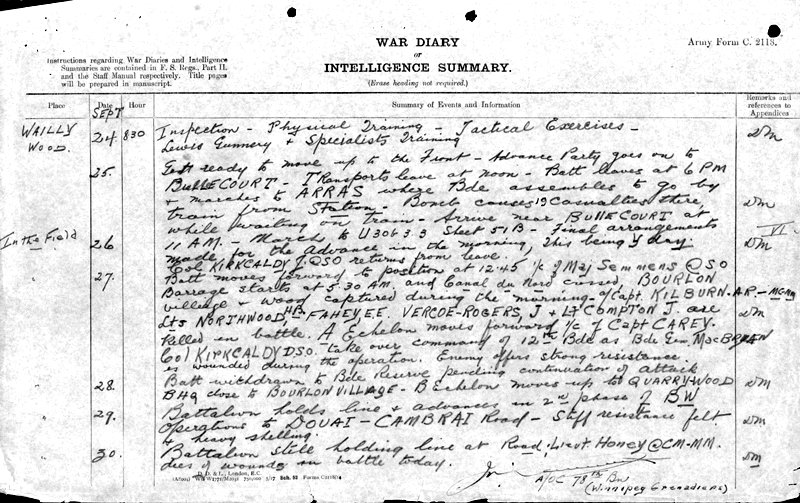 WAR DIARY
or
INTELLIGENCE SUMMARY.
(Erase heading not required.)
Army Form C. 2118.
Instructions regarding War Diaries and Intelligence
Summaries are contained in F. S. Regs., Part II.
and the Staff Manual respectively. Title pages
will be prepared in manuscript.
Place
Date
Hour
Summary of Events and Information
Remarks and
references to
Appendices
SEPT
WAILLY
WOOD.
24 830 Inspection - Physical Training - Tactical Exercises -
Lewis Gunnery & Specialists Training
25. Get ready to move up to the Front - Advance Party goes on to
BULLECOURT - Transports leave at noon - Batt leaves at 6 PM
& marches to ARRAS where Bde assembles to go by
train from Station - Bomb causes 19 Casualties there,
while waiting on train - Arrive near BULLECOURT at
In the Field
26 11 A.M. - March to U30b 3.3 Sheet 51B - Final arrangements
made for the advance in the morning, this being Y day
VI
Col KIRKCALDY J. DSO returns from leave.
27. Batt moves forward to position at 12.45 i/c of Maj Semmens DSO
Barrage starts at 5.30 AM. and Canal du Nord crossed, BOURLON
village & wood captured during the morning - a/Capt. KILBURN A.R. - MC MM
Lts NORTHWOOD HB FAHEY EE. VERCOE-ROGERS, J & Lt COMPTON J. are
killed in battle. A Echelon moves forward i/c of Capt CAREY.
Col KIRKCALDY DSO. take over command of 12th Bde as Bde Gen. MacBRYEN
is wounded during the operation. Enemy offers strong resistance.
28. Batt withdrawn to Bde Reserve pending continuation of attack
BHQ close to BOURLON VILLAGE - B Echelon moves up to QUARRY WOOD
29. Battalion holds line & advances in 2nd phase of BW
operations to DOUAI - CAMBRAI Road - Stiff resistance felt
& heavy shelling.
30. Battalion still holding line at Road. Lieut Honey DCM-MM.
dies of wounds in battle today.
A/OC 78th Bn
(Winnipeg Grenadiers)
D. D. & L., London, E.C.